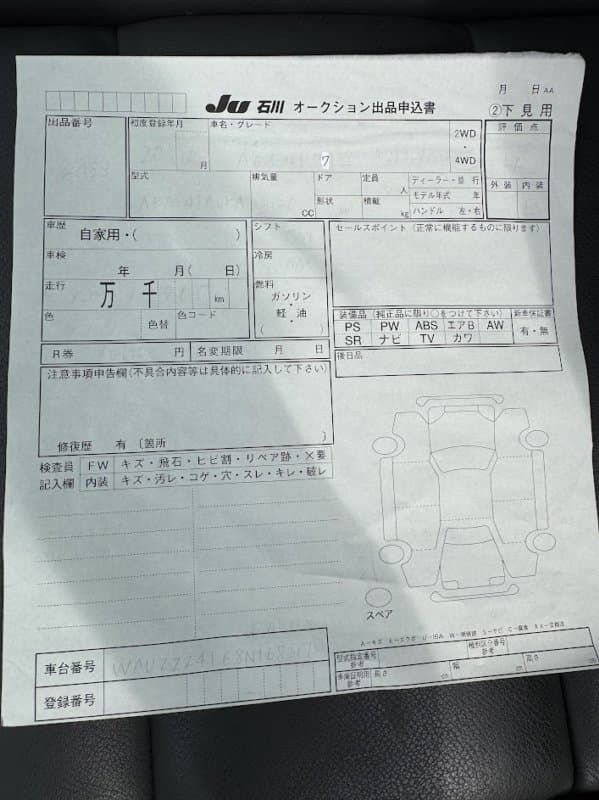 月 日 AA
JU 石川 オークション出品申込書
②下見用
出品番号
初度登録年月
月
車名・グレード
7
2WD
・
4WD
評価点
外装 内装
型式
排気量
CC
ドア
形状
定員
人
積載
kg
ディーラー・並行
モデル年式 年
ハンドル 左・右
車歴
自家用・( )
車検
年 月( 日)
走行
万 千 km
色
色替
色コード
シフト
冷房
燃料
ガソリン
・
軽・油
( )
セールスポイント (正常に機能するものに限ります)
装備品 (純正品に限り○をつけて下さい) 新車保証書
PS PW ABS エアB AW
SR ナビ TV カワ
有・無
後日品
R券 円 名変期限 月 日
注意事項申告欄(不具合内容等は具体的に記入して下さい)
修復歴 有 〔箇所 〕
検査員
記入欄
FW キズ・飛石・ヒビ割・リペア跡・×要
内装 キズ・汚レ・コゲ・穴・スレ・キレ・破レ
スペア
車台番号
登録番号
型式指定番号
参考
類別区分番号
参考
車庫証明用
参考
長さ cm 幅 cm 高さ cm